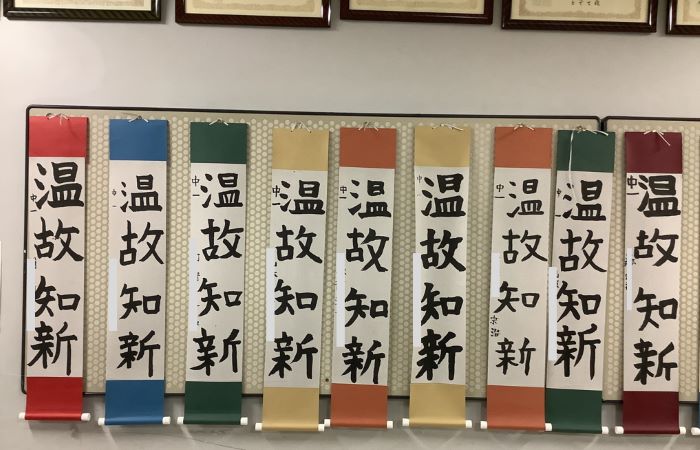 温故知新
中一
温故知新
中一
温故知新
中一
温故知新
中一
温故知新
中一
温故知新
中
温故知新
中一
宗治
温故知新
中一
温故知新
中一